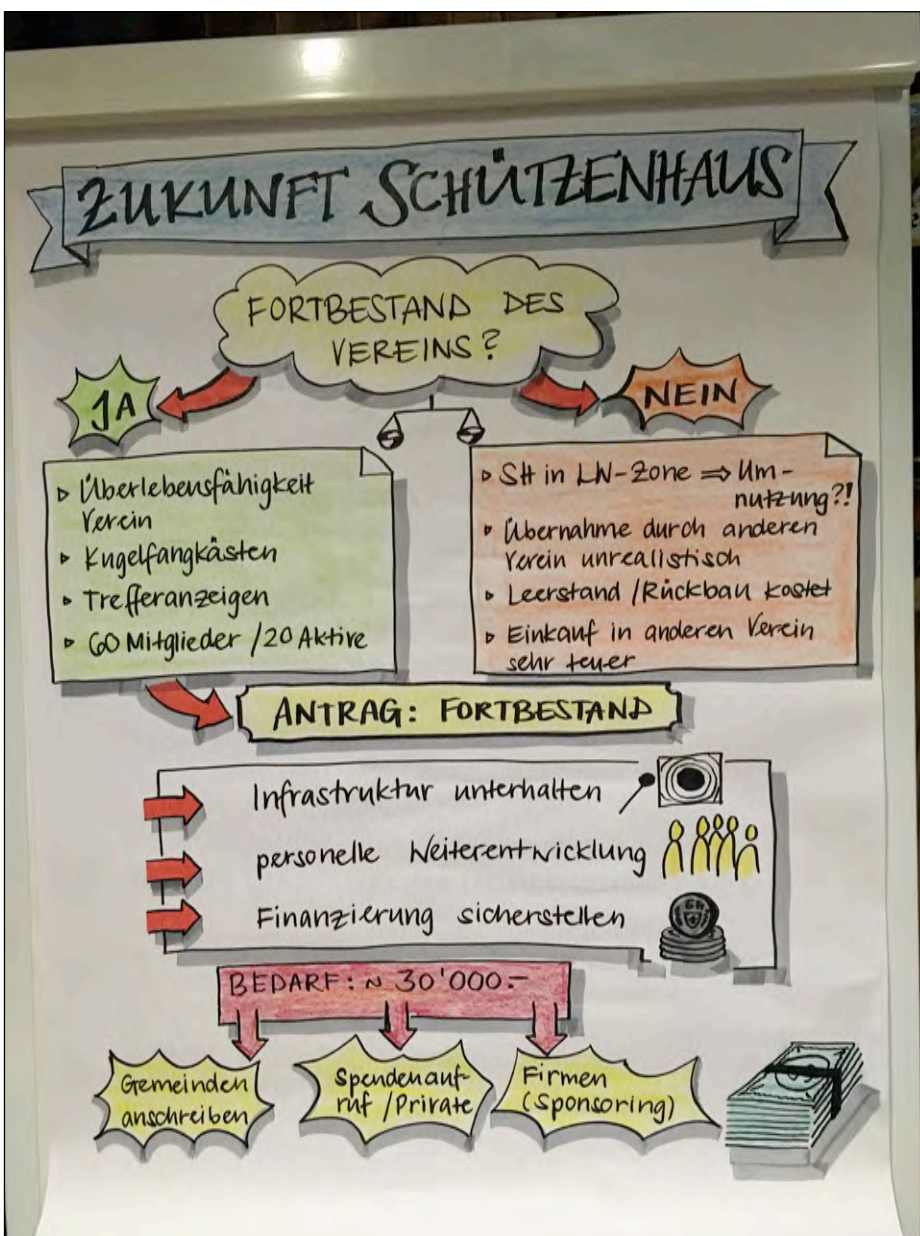 ZUKUNFT SCHÜTZENHAUS
FORTBESTAND DES
VEREINS?
JA
NEIN
▹ Überlebensfähigkeit
Verein
▹ Kugelfangkästen
▹ Trefferanzeigen
▹ 60 Mitglieder / 20 Aktive
▹ SH in LW-Zone ⇒ Um-
nutzung?!
▹ Übernahme durch anderen
Verein unrealistisch
▹ Leerstand / Rückbau kostet
▹ Einkauf in anderen Verein
sehr teuer
ANTRAG: FORTBESTAND
Infrastruktur unterhalten
personelle Weiterentwicklung
Finanzierung sicherstellen
BEDARF: ~ 30'000.-
Gemeinden
anschreiben
Spendenauf-
ruf / Private
Firmen
(Sponsoring)